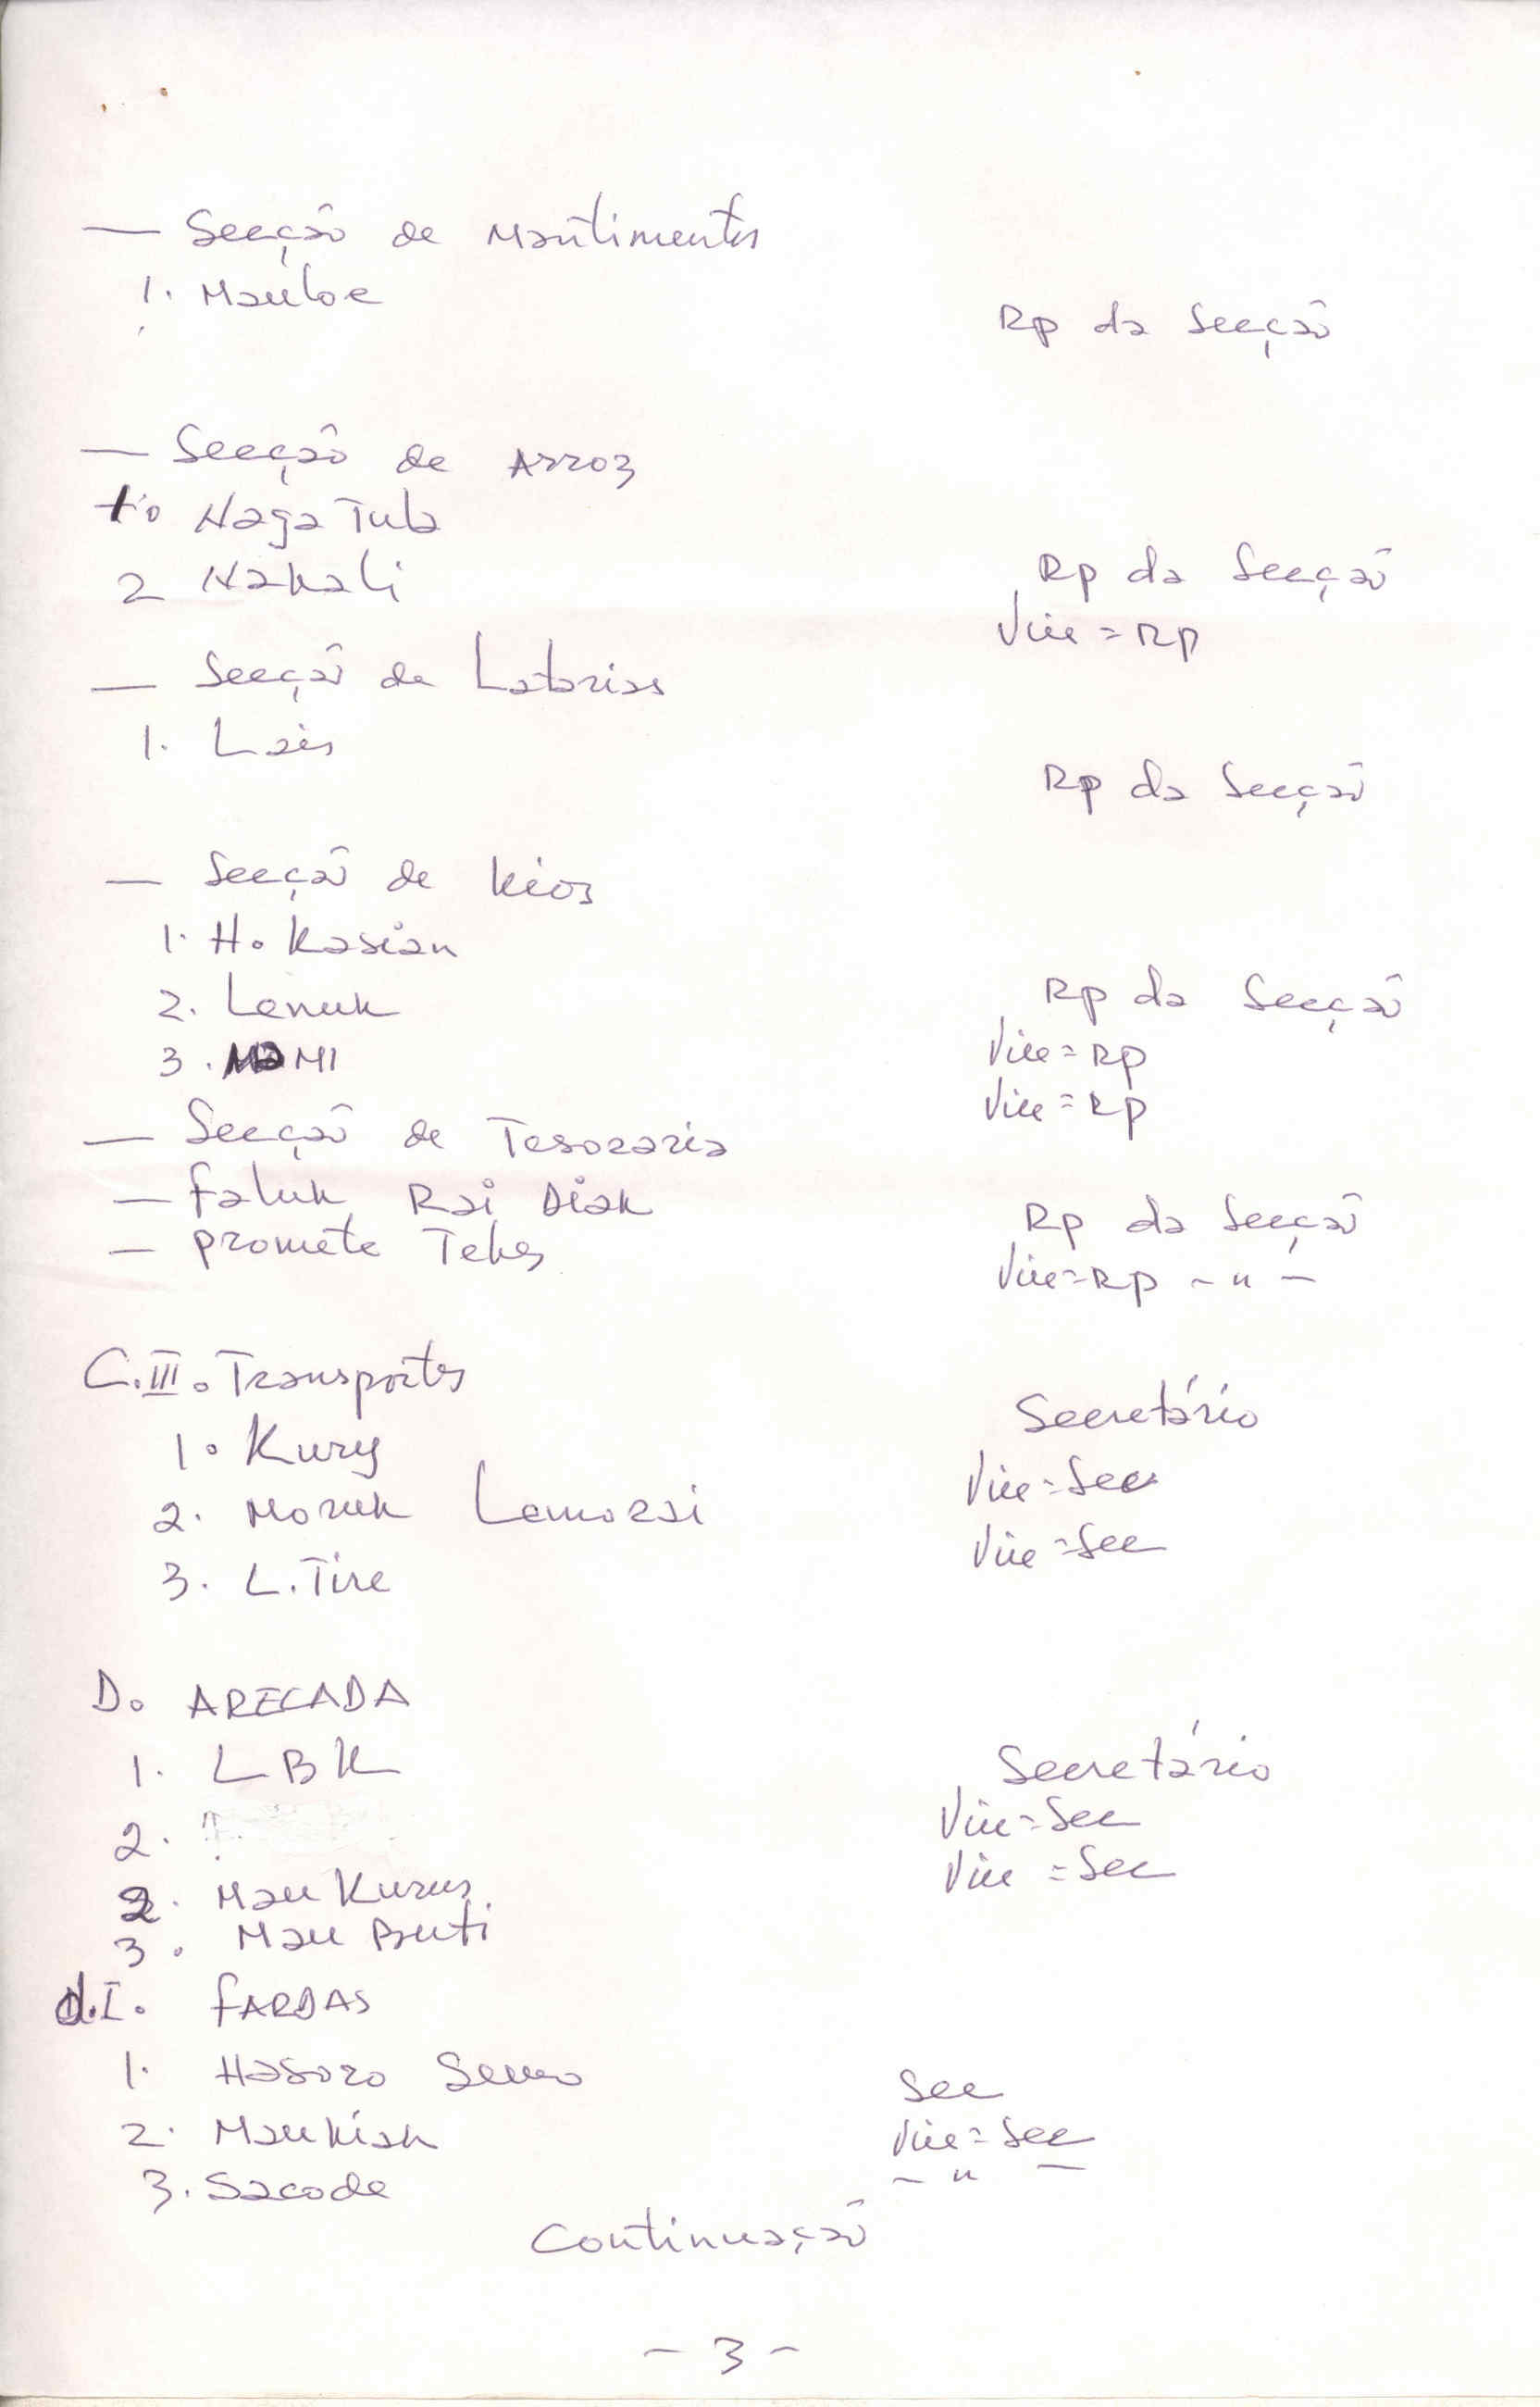 — Secção de Mantimentos
1. Mauloe
Rp da Secção
— Secção de Arroz
1. Naga Tula
2 Nakali
Rp da Secção
Vice=Rp
— Secção de Latarias
1. Lais
Rp da Secção
— Secção de Kios
1. H. Kasian
2. Lenuk
3. MI
Rp da Secção
Vice=Rp
Vice=Rp
— Secção de Tesoraria
— Faluk Rai Diak
— Promete Tekes
Rp da Secção
Vice=Rp - " -
C.III. Transportes
1. Kury
2. Moruk Lemorai
3. L. Tire
Secretário
Vice=Sec
Vice=Sec
D. ARECADA
1. LBK
2. ?
2. Mau Kurus
3. Mau Buti
Secretário
Vice=Sec
Vice=Sec
d.I. FARDAS
1. Hasoro
2. Maukiak
3. Sacode
Sec
Vice=Sec
- " -
Continuação
- 3 -